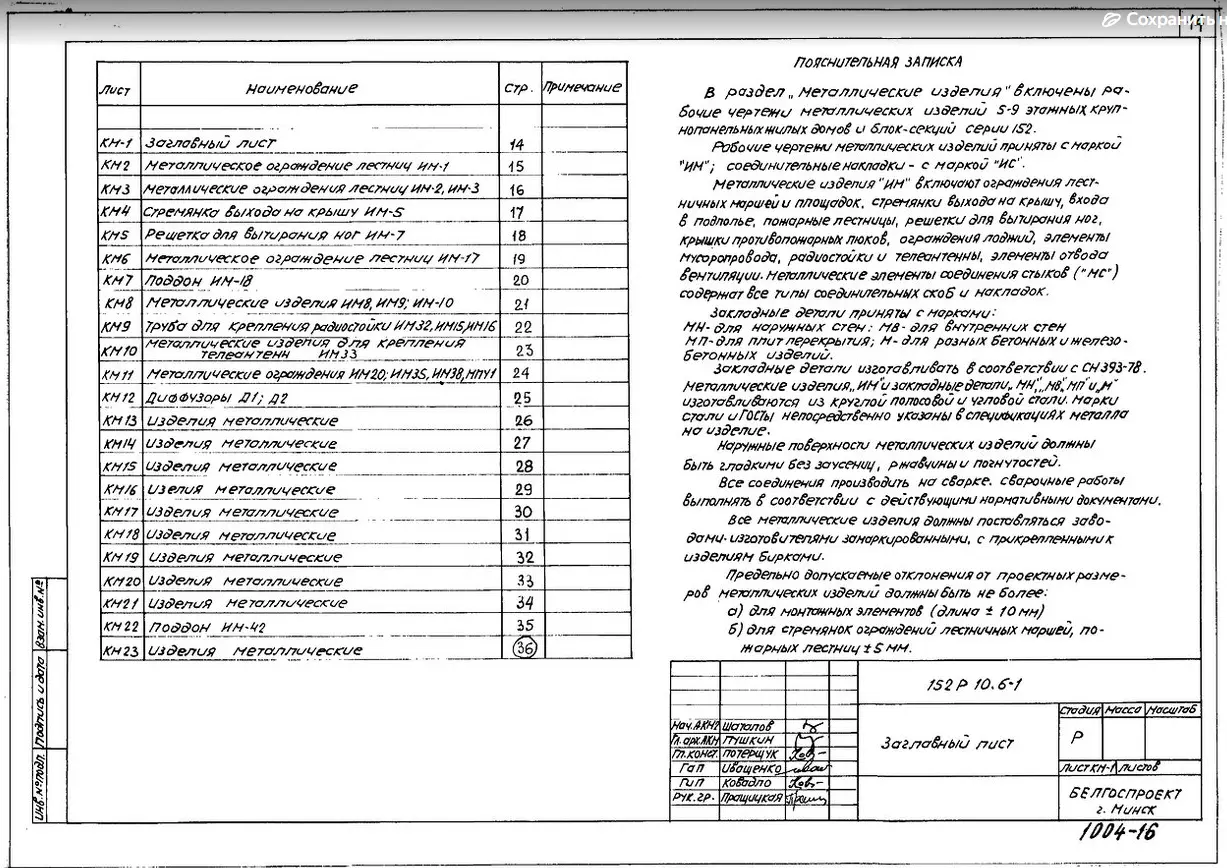 Сохранить
14
Лист Наименование Стр. Примечание
КМ-1 Заглавный лист 14
КМ2 Металлическое ограждение лестниц ИМ-1 15
КМ3 Металлические ограждения лестниц ИМ-2, ИМ-3 16
КМ4 Стремянка выхода на крышу ИМ-5 17
КМ5 Решетка для вытирания ног ИМ-7 18
КМ6 Металлическое ограждение лестниц ИМ-17 19
КМ7 Поддон ИМ-18 20
КМ8 Металлические изделия ИМ8, ИМ9; ИМ-10 21
КМ9 Труба для крепления радиостойки ИМ32, ИМ15, ИМ16 22
КМ10 Металлические изделия для крепления
телеантенн ИМ33 23
КМ11 Металлические ограждения ИМ20; ИМ35, ИМ38, МПУ1 24
КМ12 Диффузоры Д1; Д2 25
КМ13 Изделия металлические 26
КМ14 Изделия металлические 27
КМ15 Изделия металлические 28
КМ16 Изелия металлические 29
КМ17 Изделия металлические 30
КМ18 Изделия металлические 31
КМ19 Изделия металлические 32
КМ20 Изделия металлические 33
КМ21 Изделия металлические 34
КМ22 Поддон ИМ-42 35
КМ23 Изделия металлические 36
Пояснительная записка
В раздел „Металлические изделия" включены ра-
бочие чертежи металлических изделий 5-9 этажных круп-
нопанельных жилых домов и блок-секций серии 152.
Рабочие чертежи металлических изделий приняты с маркой
"ИМ"; соединительные накладки - с маркой "ИС".
Металлические изделия "ИМ" включают ограждения лест-
ничных маршей и площадок, стремянки выхода на крышу, входа
в подполье, пожарные лестницы, решетки для вытирания ног,
крышки противопожарных люков, ограждения лоджий, элементы
мусоропровода, радиостойки и телеантенны, элементы отвода
вентиляции. Металлические элементы соединения стыков ("МС")
содержат все типы соединительных скоб и накладок.
Закладные детали приняты с марками:
МН-для наружных стен: МВ-для внутренних стен
МП-для плит перекрытия; М-для разных бетонных и железо-
бетонных изделий.
Закладные детали изготавливать в соответствии с СН 393-78.
Металлические изделия „ИМ" и закладные детали „МН", „МВ", „МП" и „М"
изготавливаются из круглой полосовой и угловой стали. Марки
стали и ГОСТы непосредственно указаны в спецификациях металла
на изделие.
Наружные поверхности металлических изделий должны
быть гладкими без заусениц, ржавчины и погнутостей.
Все соединения производить на сварке. Сварочные работы
выполнять в соответствии с действующими нормативными документами.
Все металлические изделия должны поставляться заво-
дами-изготовителями замаркированными, с прикрепленными к
изделиям бирками.
Предельно допускаемые отклонения от проектных разме-
ров металлических изделий должны быть не более:
а) для монтажных элементов (длина ± 10 мм)
б) для стремянок ограждений лестничных маршей, по-
жарных лестниц ± 5 мм.
152 Р 10.6-1
Заглавный лист
Стадия Масса Масштаб
Р
Лист КМ-1 Листов
БЕЛГОСПРОЕКТ
г. Минск
Нач. АКМ2 Шаталов
Гл. арх. АКМ Пушкин
Гл. конст. Потерщук
Гап Иващенко
Гип Ковадло
Рук. гр. Пращицкая
1004-16
Инв. № подл. Подпись и дата Взам. инв. №